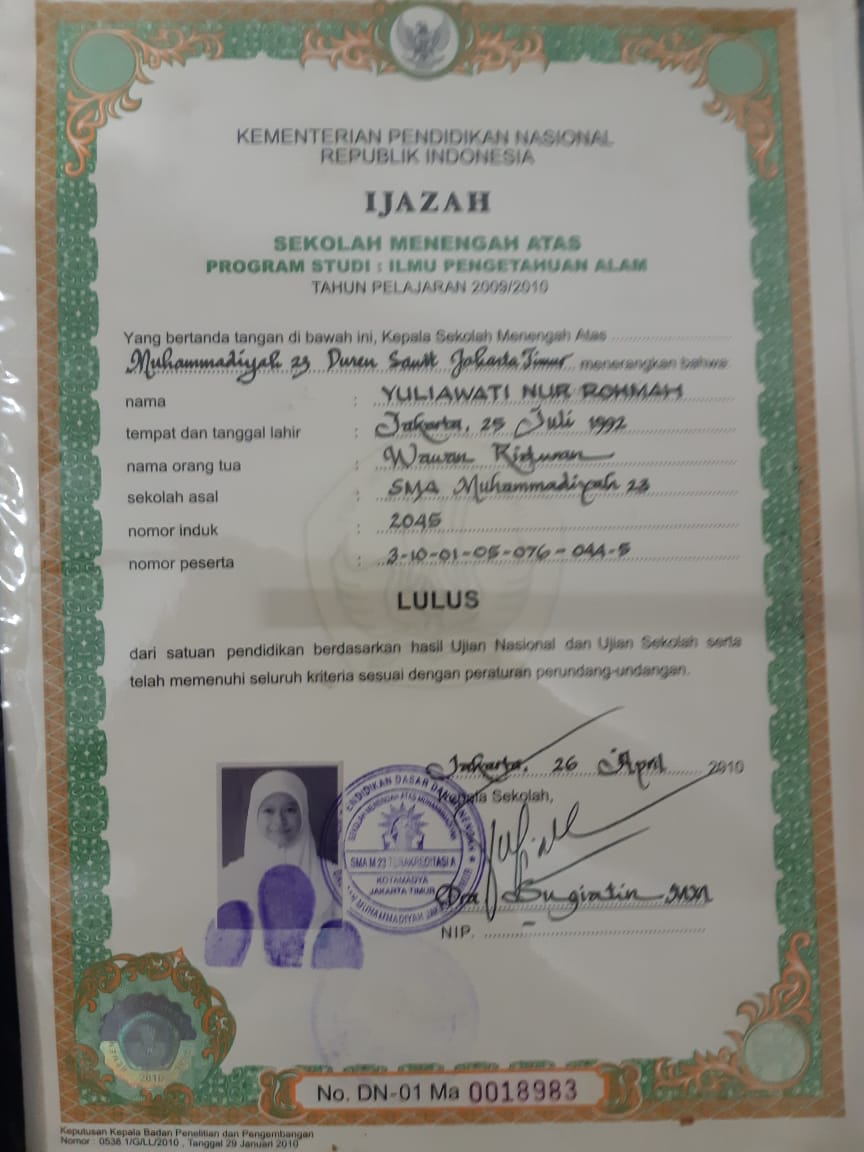 KEMENTERIAN PENDIDIKAN NASIONAL
REPUBLIK INDONESIA
IJAZAH
SEKOLAH MENENGAH ATAS
PROGRAM STUDI : ILMU PENGETAHUAN ALAM
TAHUN PELAJARAN 2009/2010
Yang bertanda tangan di bawah ini, Kepala Sekolah Menengah Atas
Muhammadiyah 23 Duren Sawit Jakarta Timur menerangkan bahwa
nama : YULIAWATI NUR ROHMAH
tempat dan tanggal lahir : Jakarta, 25 Juli 1992
nama orang tua : Wawan Ridwan
sekolah asal : SMA Muhammadiyah 23
nomor induk : 2045
nomor peserta : 3-10-01-05-076-044-5
LULUS
dari satuan pendidikan berdasarkan hasil Ujian Nasional dan Ujian Sekolah serta
telah memenuhi seluruh kriteria sesuai dengan peraturan perundang-undangan.
Jakarta, 26 April 2010
Kepala Sekolah,
SEKOLAH MENENGAH ATAS MUHAMMADIYAH
SMA M 23 TERAKREDITASI A
KOTAMADYA
JAKARTA TIMUR
Dra Sugiatin MM
NIP. –
2010
No. DN-01 Ma 0018983
Keputusan Kepala Badan Penelitian dan Pengembangan
Nomor : 0538.1/G/LL/2010 , Tanggal 29 Januari 2010